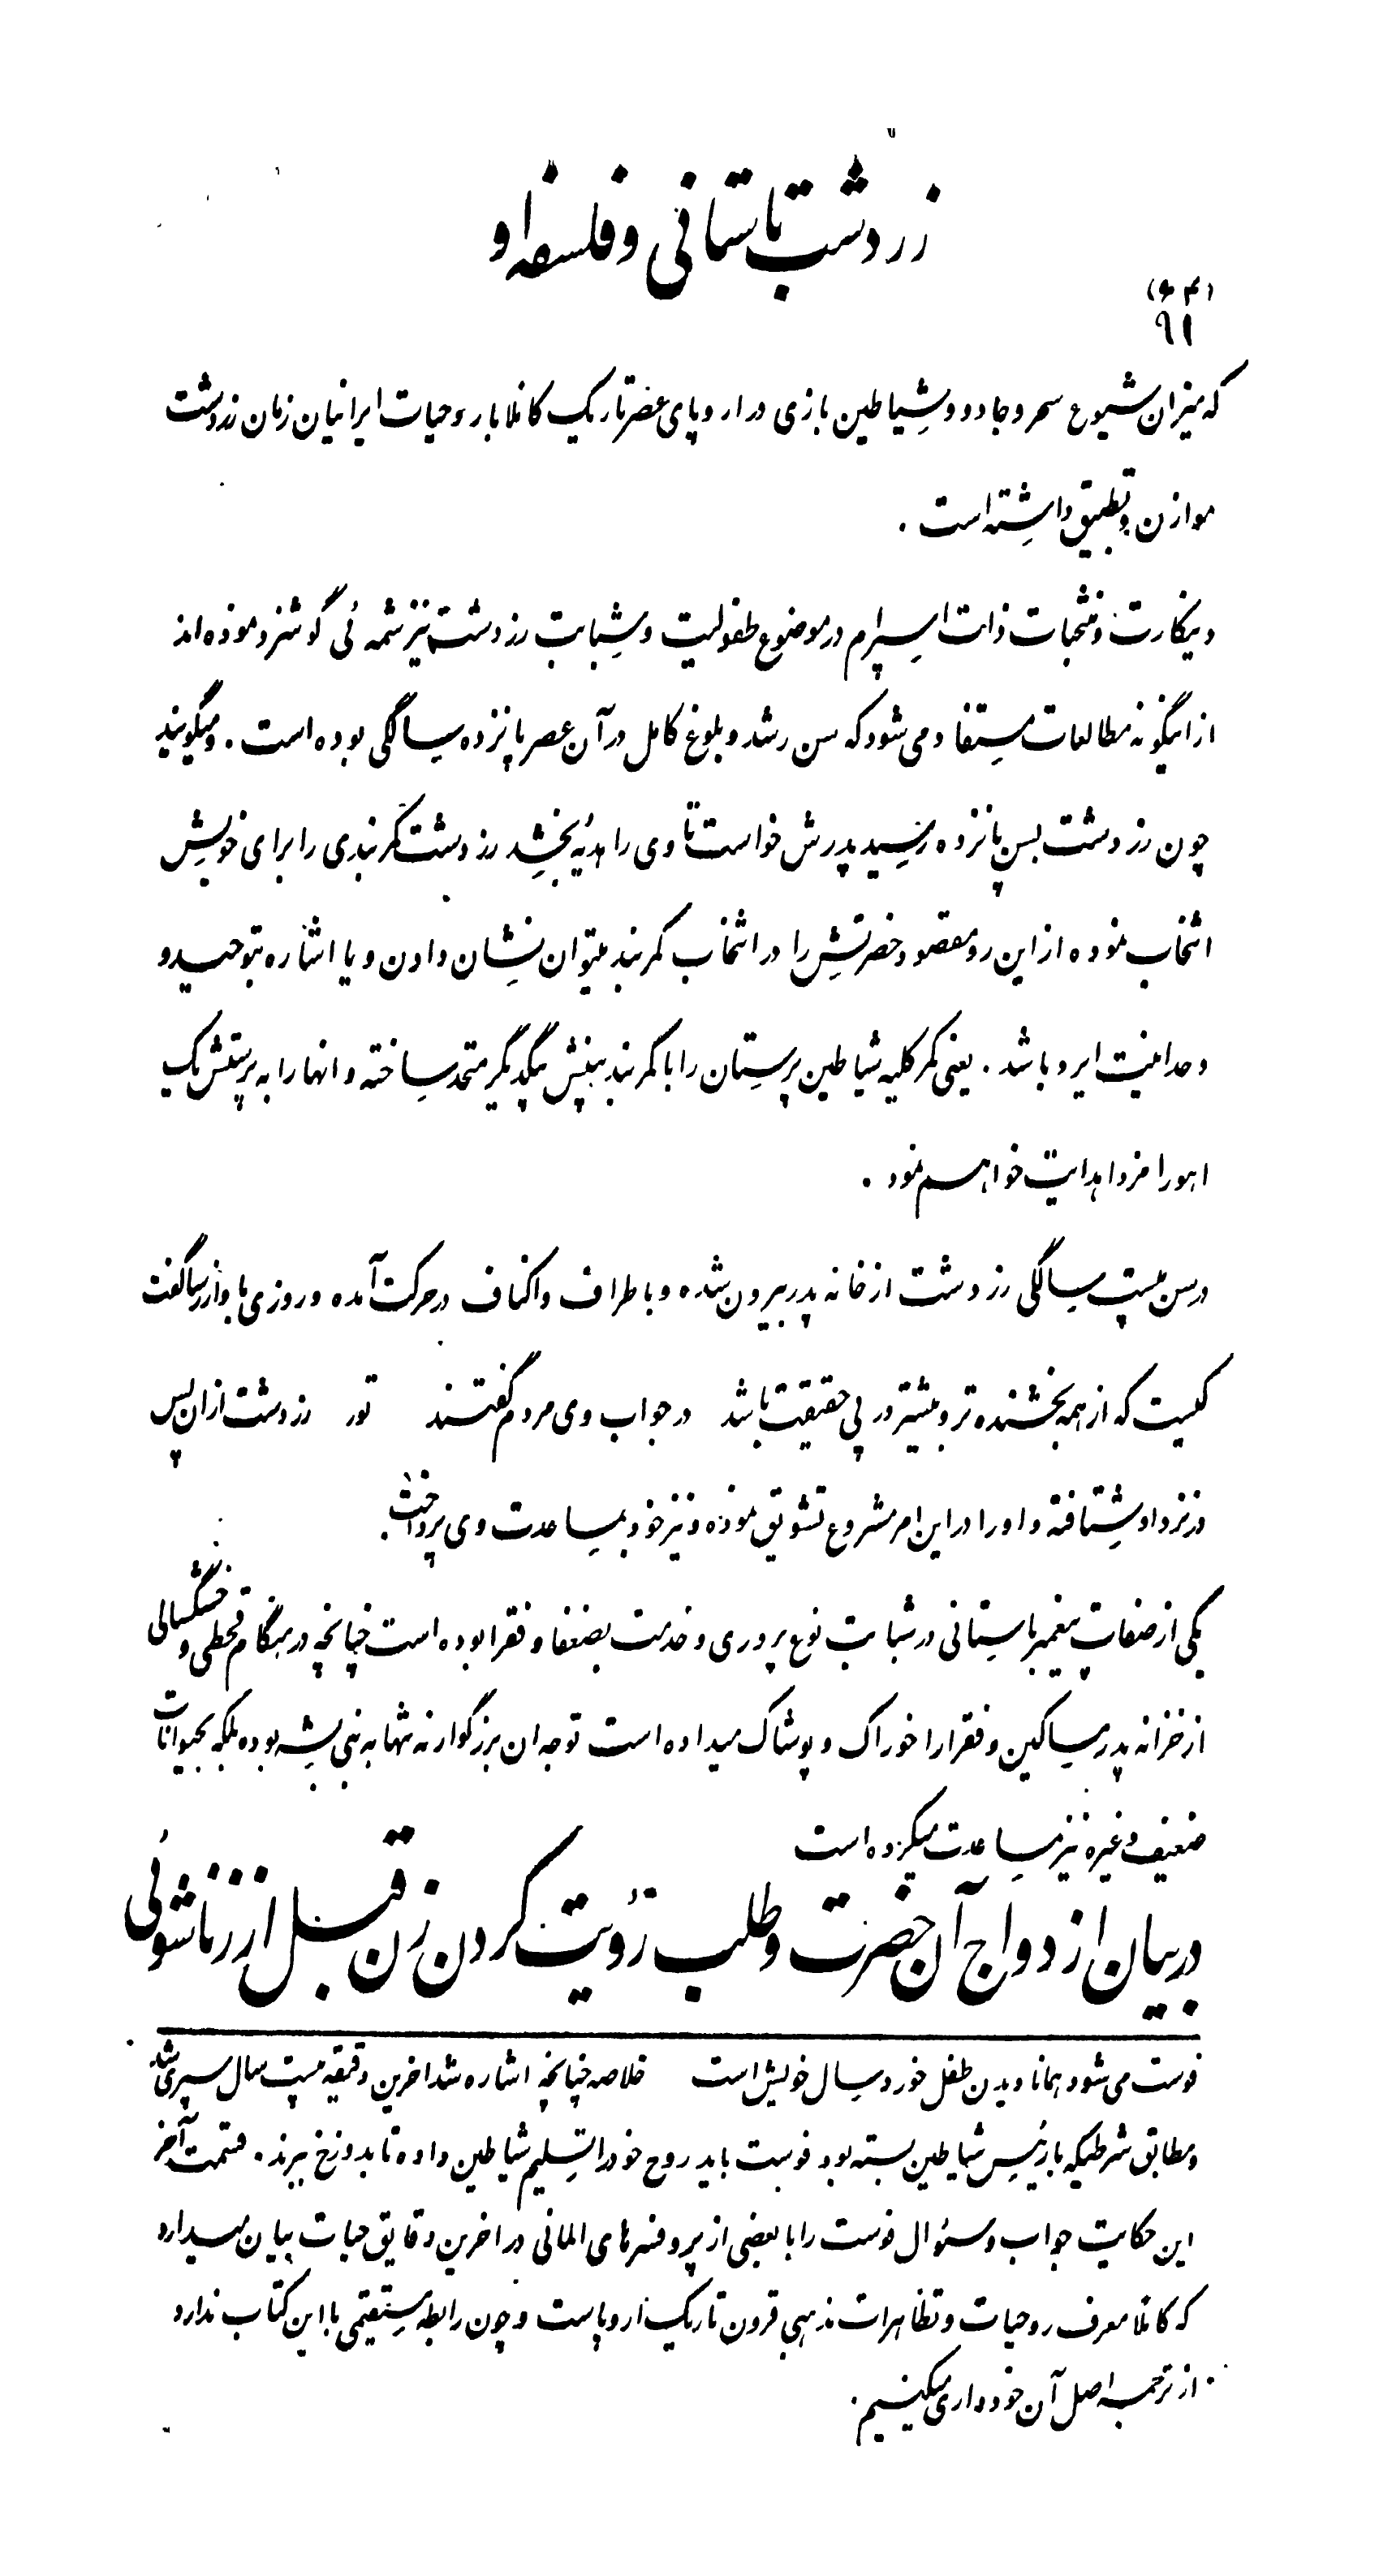 زردشت باستانی و فلسفه او
(۶۴)
۹۱
که میزان شیوع سحر و جادو و شیاطین بازی در اروپای عصر تاریک کاملا با روحیات ایرانیان زمان زردشت
موازن و تطبیق داشته است .
دینکارت و منتخبات ذات اسپرام در موضوع طفولیت و شبابت زردشت نیز شمه ئی گوشزد نموده اند
از اینگونه مطالعات مستفاد می شود که سن رشد و بلوغ کامل در آن عصر پانزده سالگی بوده است . و میگویند
چون زردشت بسن پانزده رسید پدرش خواست تا وی را هدیه بخشد زردشت کمربندی را برای خویش
انتخاب نموده از این رو مقصود حضرتش را در انتخاب کمربند میتوان نشان دادن و یا اشاره بتوحید و
وحدانیت ایزد باشد . یعنی کمر کلیه شیاطین پرستان را با کمربند بینش بیکدیگر متحد ساخته و انها را به پرستش یک
اهورا مزدا هدایت خواهم نمود .
در سن بیست سالگی زردشت از خانه پدر بیرون شده و باطراف و اکناف در حرکت آمده و روزی با واز رسا گفت
کیست که از همه بخشنده تر و بیشتر در پی حقیقت باشد در جواب وی مردم گفتند تور زردشت ازان پس
در نزد او شتافته و او را در این امر مشروع تشویق نموده و نیز خود بمساعدت وی پرداخت .
یکی از صفات پیغمبر باستانی در شبابت نوع پروری و خدمت بضعفا و فقرا بوده است چنانچه در هنگام قحطی و خشگسالی
از خزانه پدر مساکین و فقرا را خوراک و پوشاک میداده است توجه ان بزرگوار نه تنها به بنی بشر بوده بلکه بحیوانات
ضعیف و غیره نیز مساعدت میکرده است
در بیان ازدواج آن حضرت و طلب رؤیت کردن زن قبل از زناشوئی
فوست می شود همانا دیدن طفل خورد سال خویش است خلاصه چنانچه اشاره شد اخرین دقیقه بیست سال سپری شد
و مطابق شرطیکه با رئیس شیاطین بسته بود فوست باید روح خود را تسلیم شیاطین داده تا بدوزخ ببرند . قسمت آخر
این حکایت جواب و سئوال فوست را با بعضی از پروفسرهای المانی در اخرین دقایق حیات بیان میدارد
که کاملا معرف روحیات و تظاهرات مذهبی قرون تاریک اروپاست و چون رابطه مستقیمی با این کتاب ندارد
از ترجمه اصل آن خودداری میکنیم .